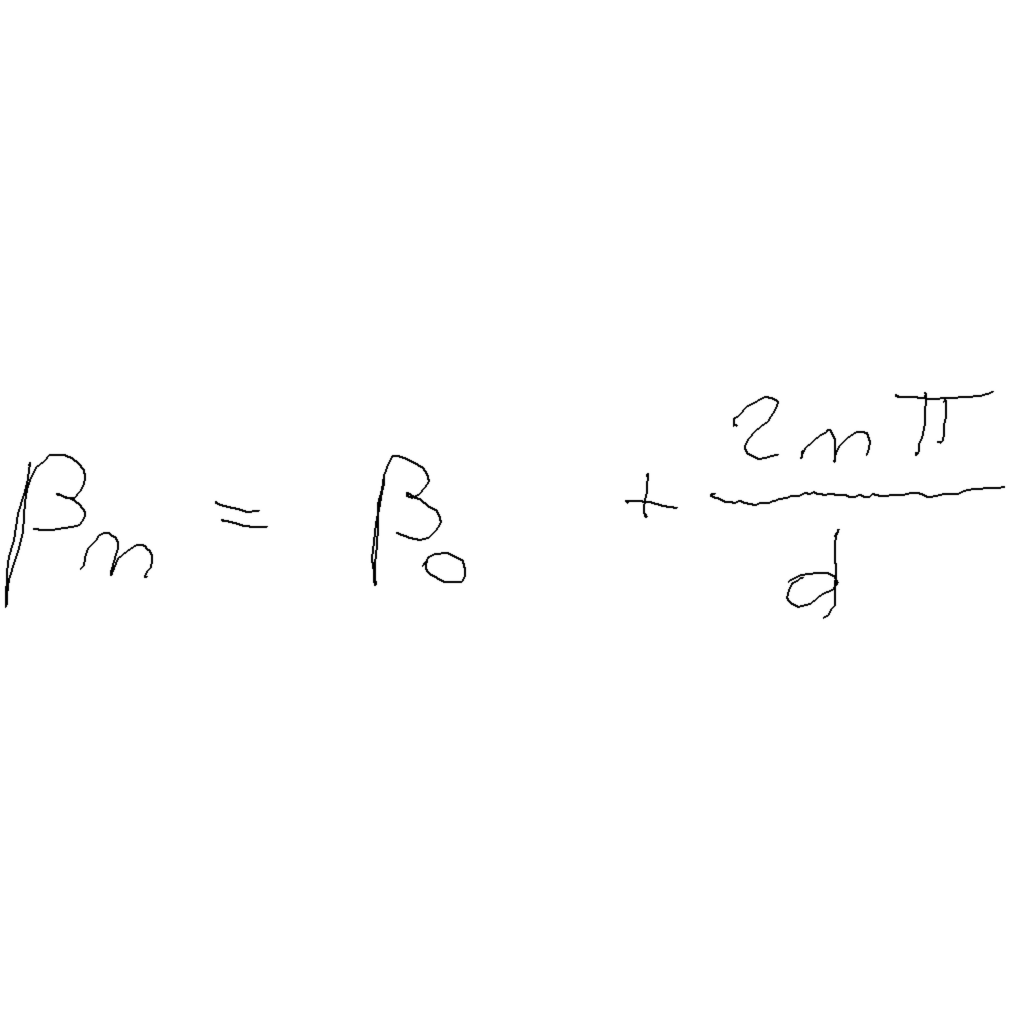 \beta_n = \beta_0 + \frac{2n\pi}{d}